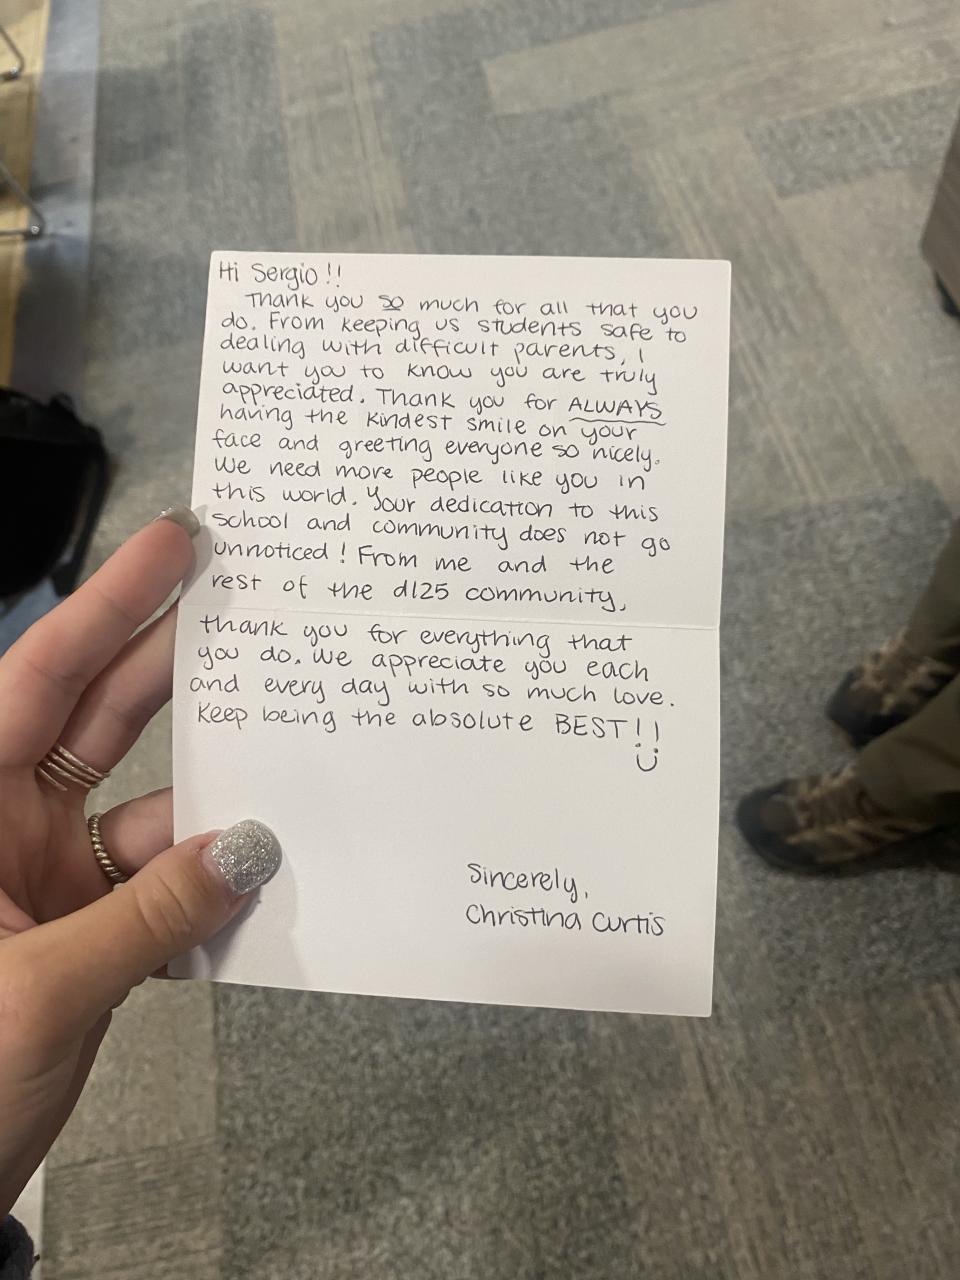 Hi Sergio!!
Thank you so much for all that you
do. From keeping us students safe to
dealing with difficult parents, I
want you to know you are truly
appreciated. Thank you for ALWAYS
having the kindest smile on your
face and greeting everyone so nicely.
We need more people like you in
this world. Your dedication to this
school and community does not go
unnoticed! From me and the
rest of the d125 community,
thank you for everything that
you do. We appreciate you each
and every day with so much love.
Keep being the absolute BEST!!
Sincerely,
Christina Curtis